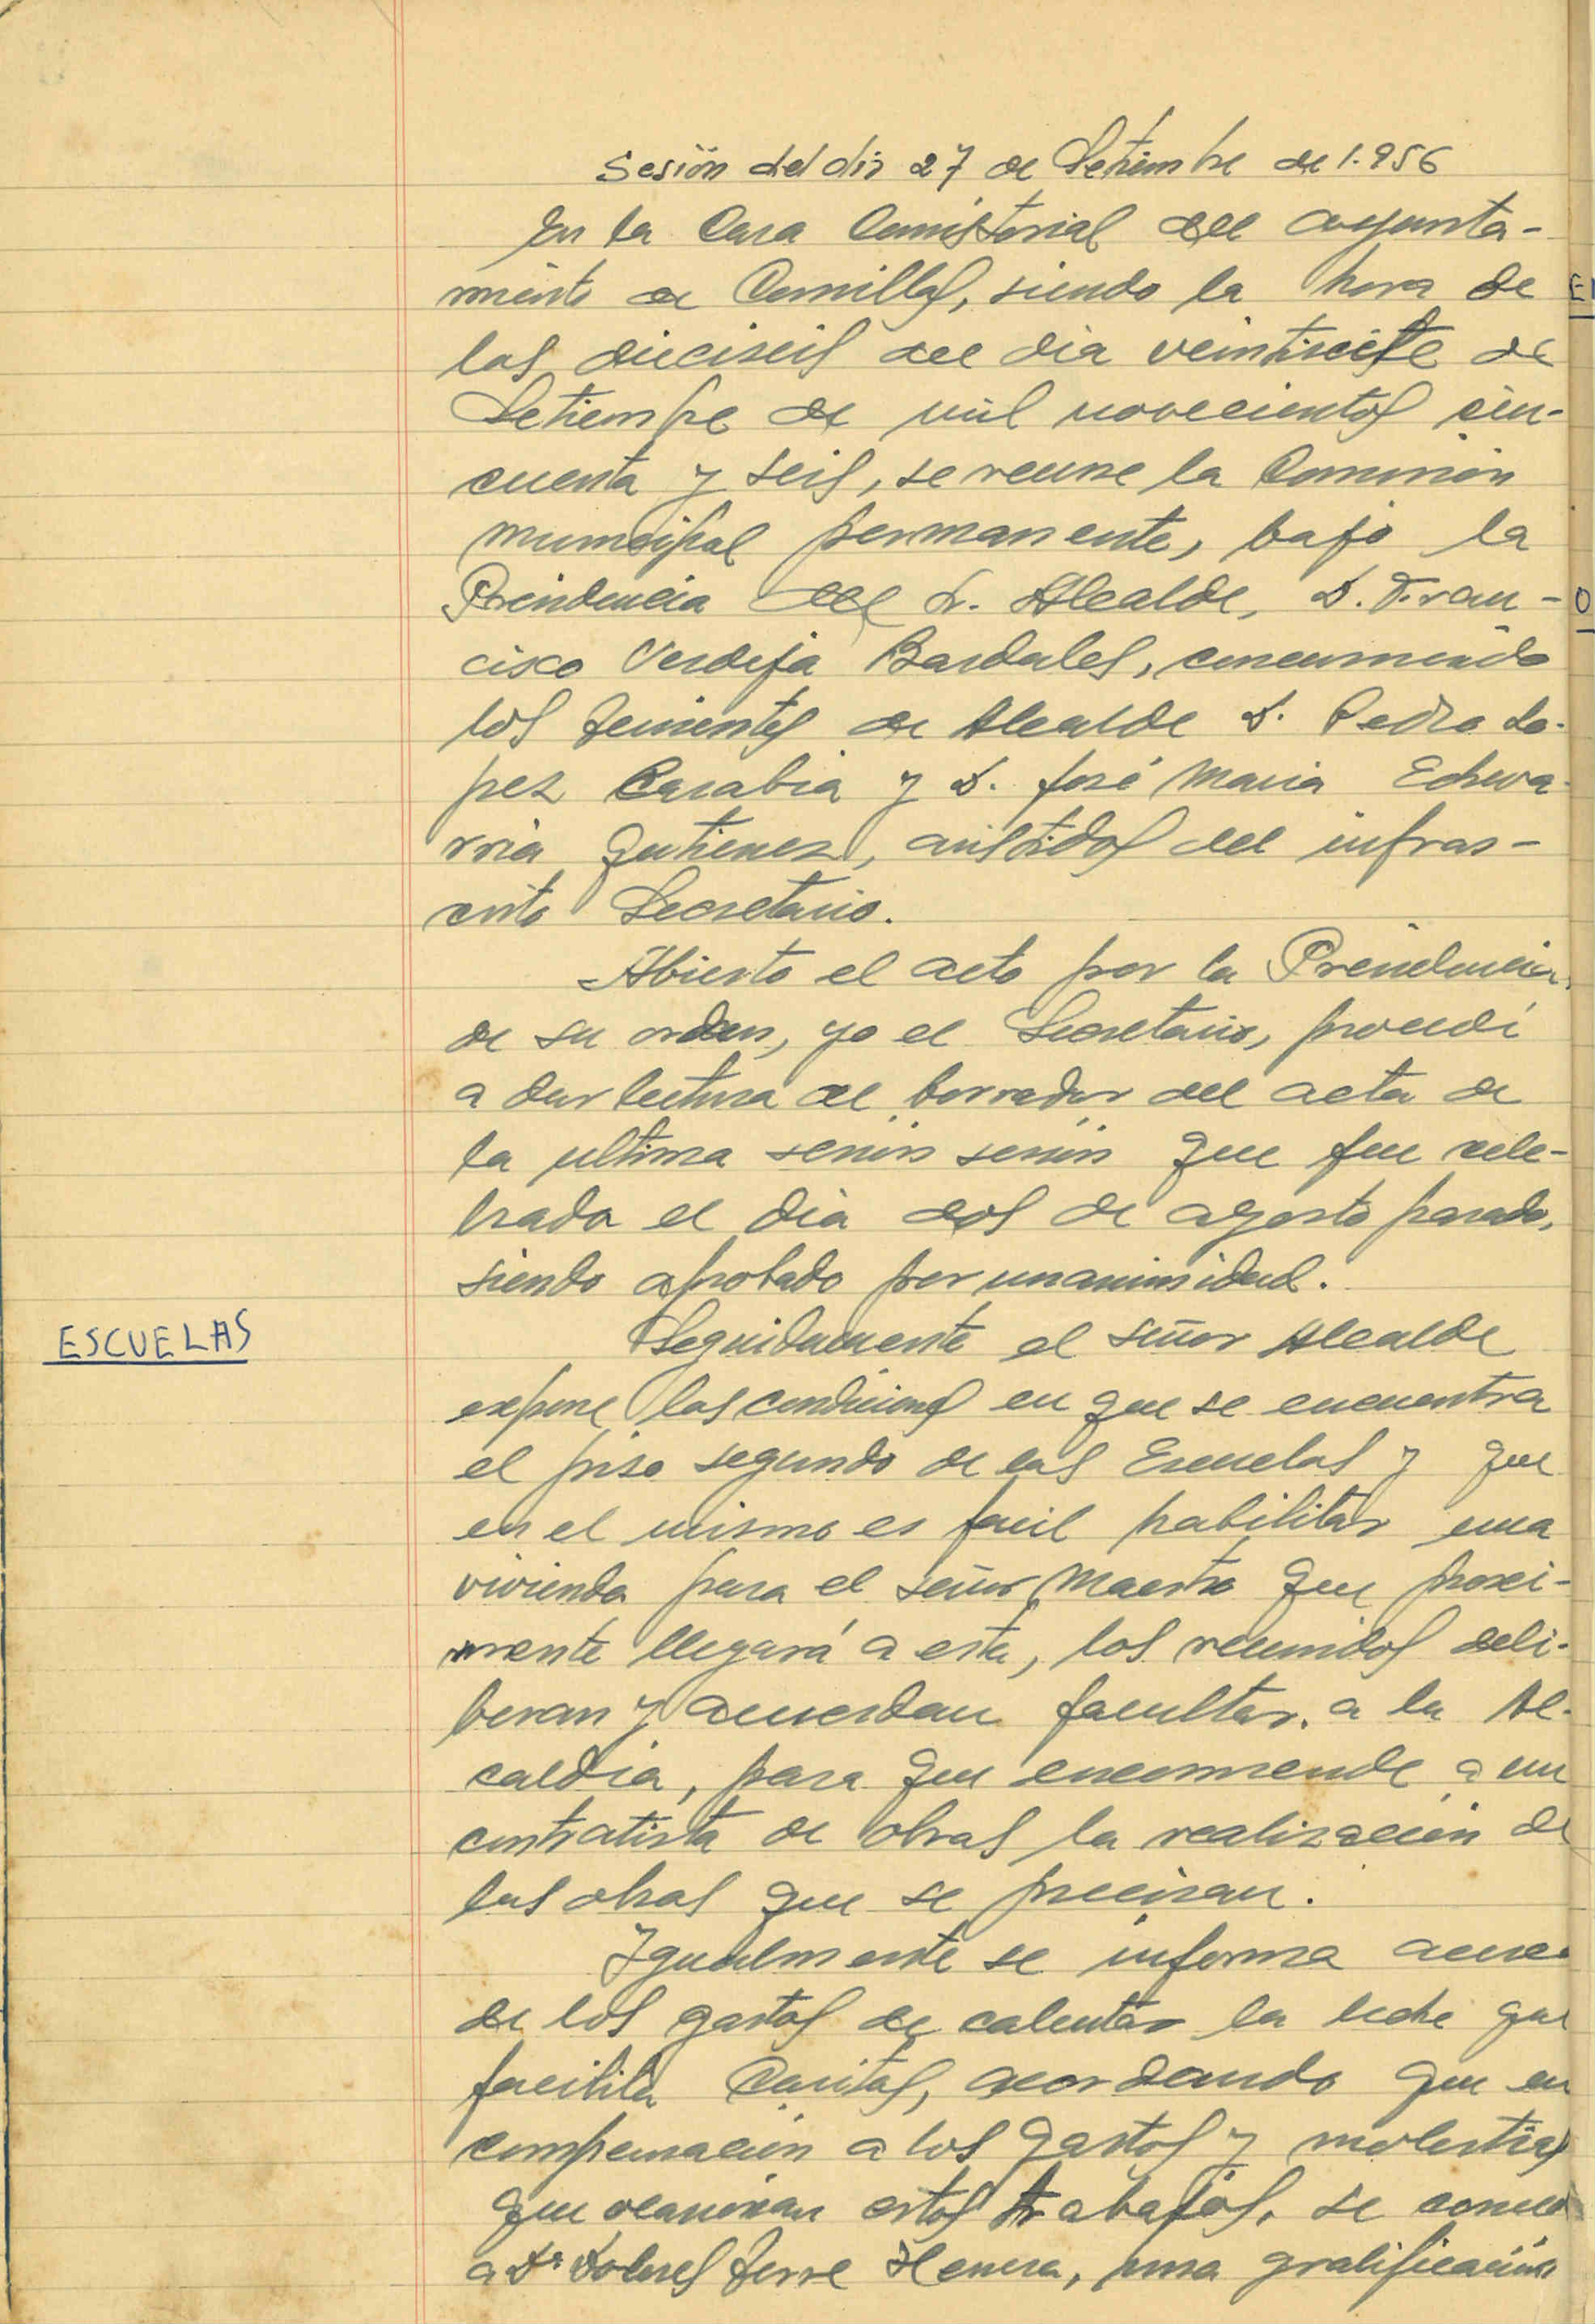 Sesión del dia 27 de Setiembre de 1.956
En la Casa Consistorial del Ayunta-
miento de Comillas, siendo la hora de
las dieciseis del dia veintisiete de
Setiembre de mil novecientos cin-
cuenta y seis, se reune la Comisión
municipal permanente, bajo la
Presidencia del Sr. Alcalde, D. Fran-
cisco Verdeja Bardales, concurriendo
los Tenientes de Alcalde D. Pedro Lo-
pez Carabia y D. José Maria Echeva-
rria Gutierrez, asistidos del infras-
crito Secretario.
Abierto el acto por la Presidencia,
de su orden, yo el Secretario, procedí
a dar lectura al borrador del acta de
la ultima sesión sesión que fue cele-
brada el dia dos de agosto pasado,
siendo aprobado por unanimidad.
ESCUELAS
Seguidamente el señor Alcalde
expone las condiciones en que se encuentra
el piso segundo de las Escuelas y que
en el mismo es facil habilitar una
vivienda para el señor Maestro que proxi-
mente llegará a esta, los reunidos deli-
beran y acuerdan facultar a la Al-
caldia, para que encomiende a un
contratista de obras la realización de
las obras que se precisan.
Igualmente se informa acerca
de los gastos de calentar la leche que
facilita Caritas, acordando que en
compensación a los gastos y molestias
que ocasionan estos trabajos, se concede
a Dª Dolores Herrera, una gratificación